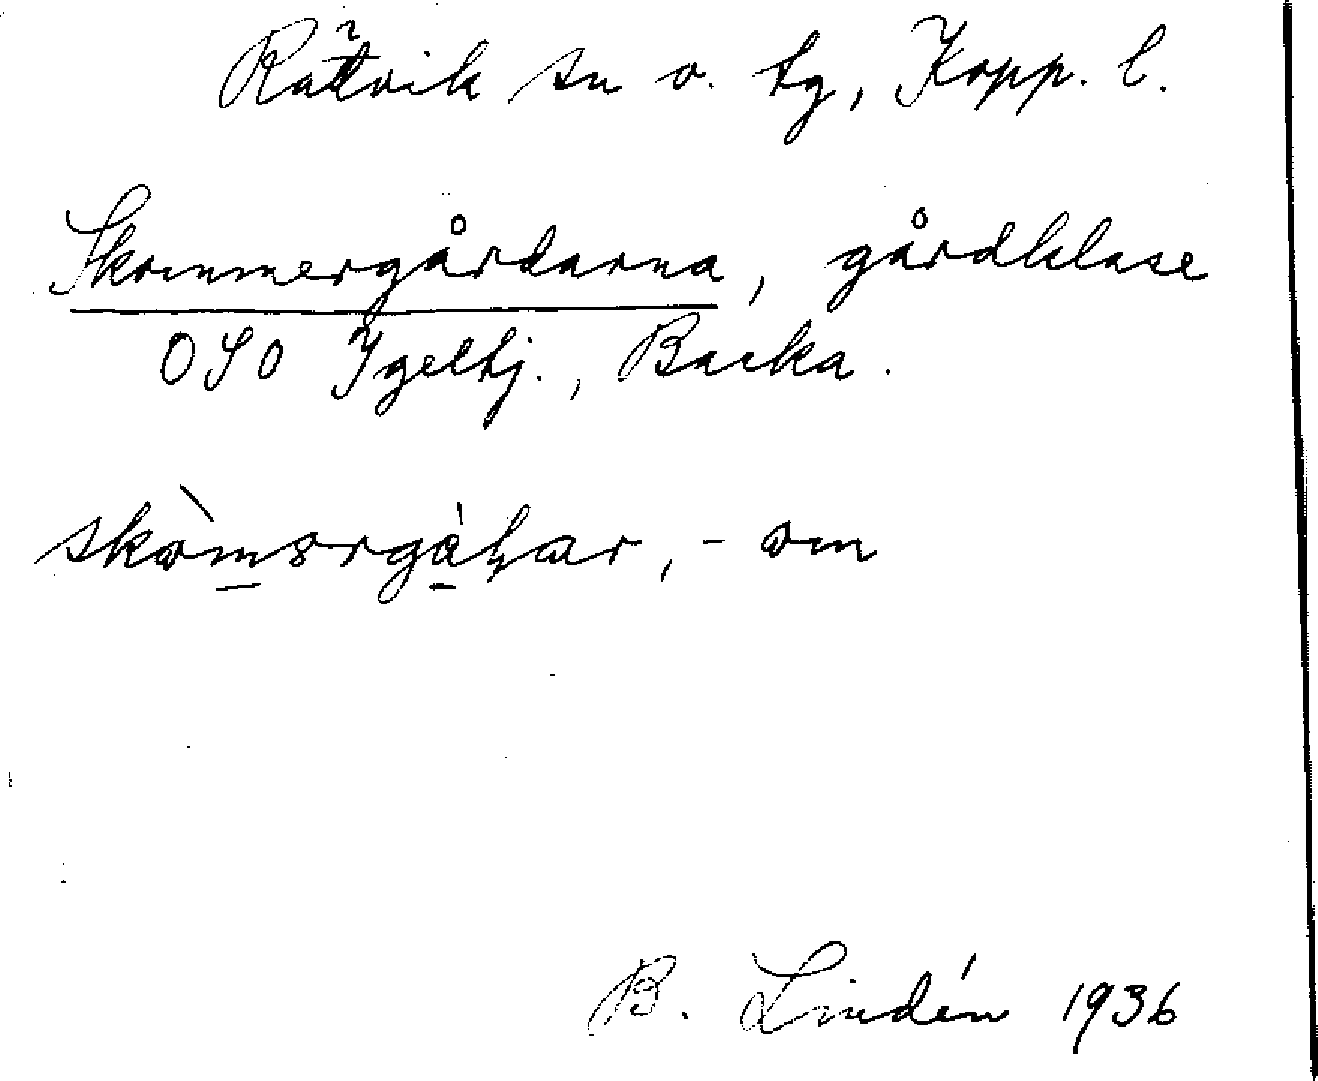 Rättvik sn o. tg, Kopp. l.
Skommergårdarna, gårdklase
OSO Igeltj., Backa.
B. Lindén 1936